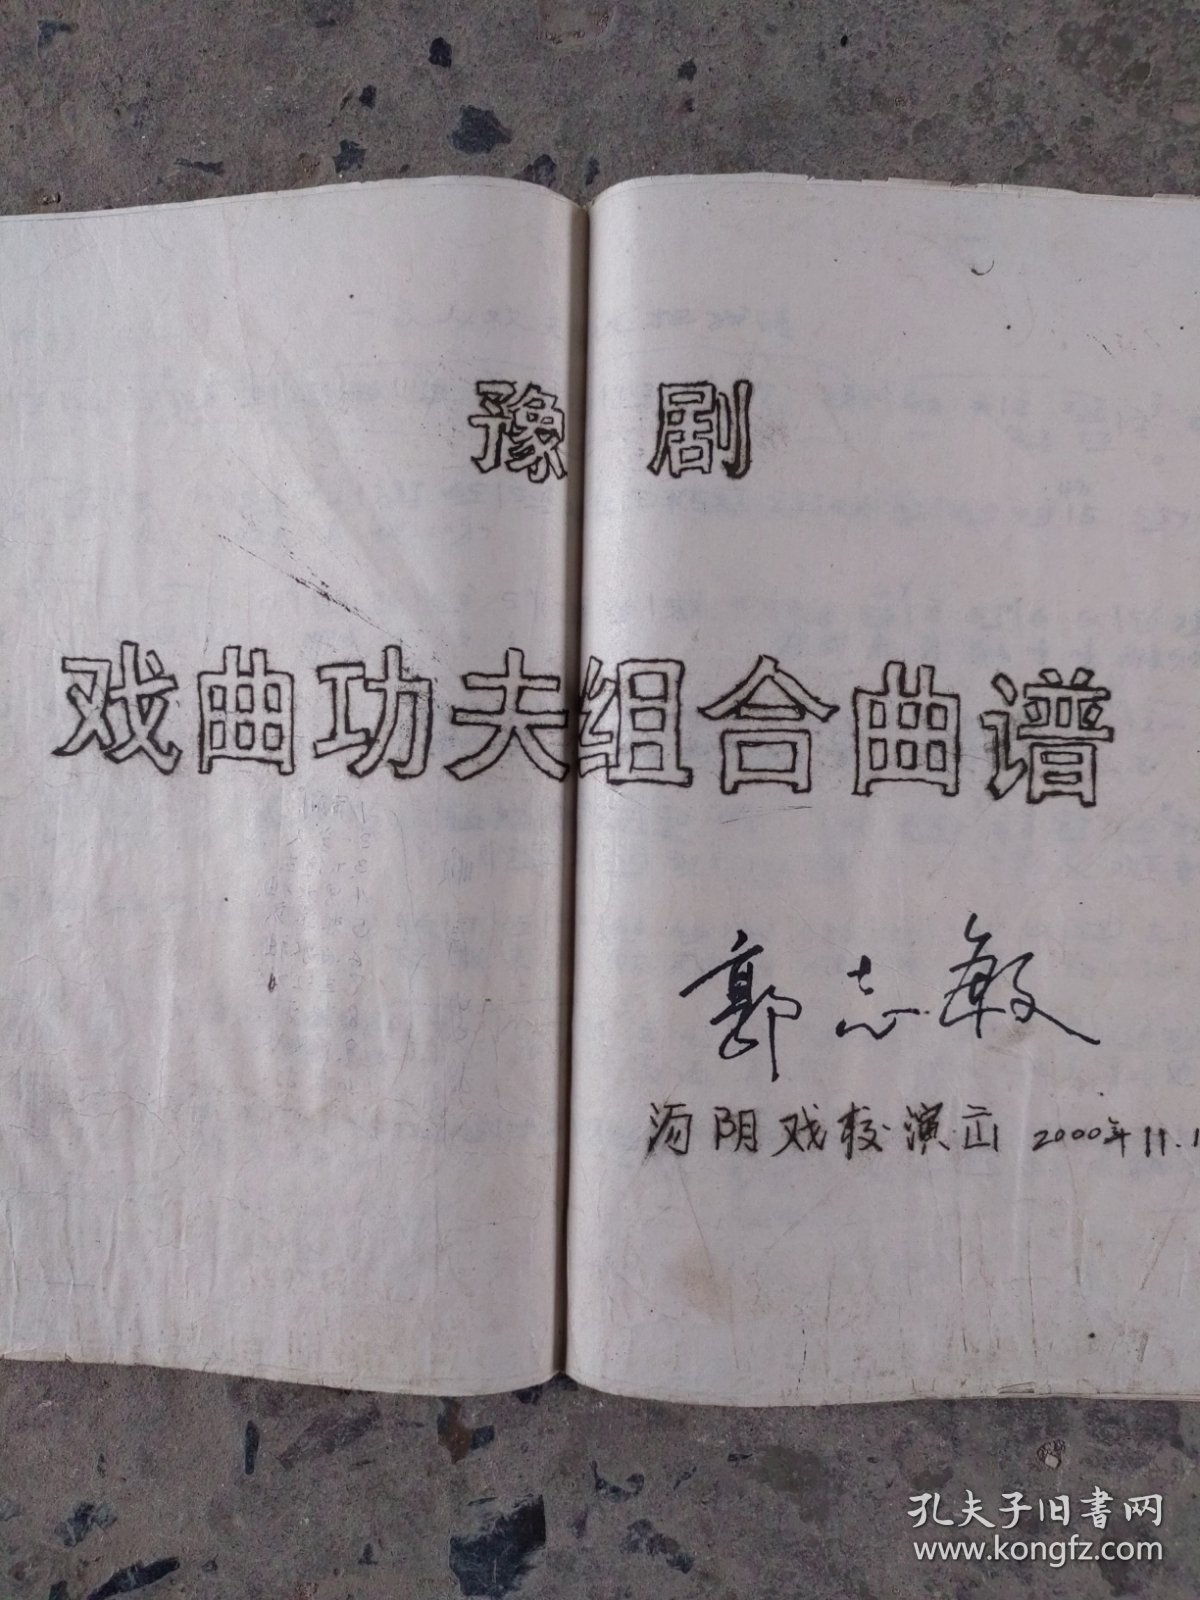 豫剧
戏曲功夫组合曲谱
郭志敏
汤阴戏校演出 2000年11.1
孔夫子旧书网
www.kongfz.com